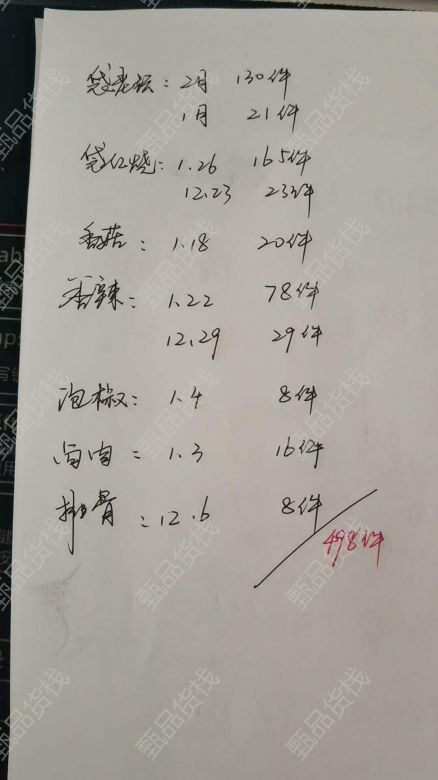 袋老坛：2月 130件
1月 21件
袋红烧：1.26 165件
12.23 23件
香菇：1.18 20件
香辣：1.22 78件
12.29 29件
泡椒：1.4 8件
卤肉：1.3 16件
排骨：12.6 8件
498件
甄品货栈